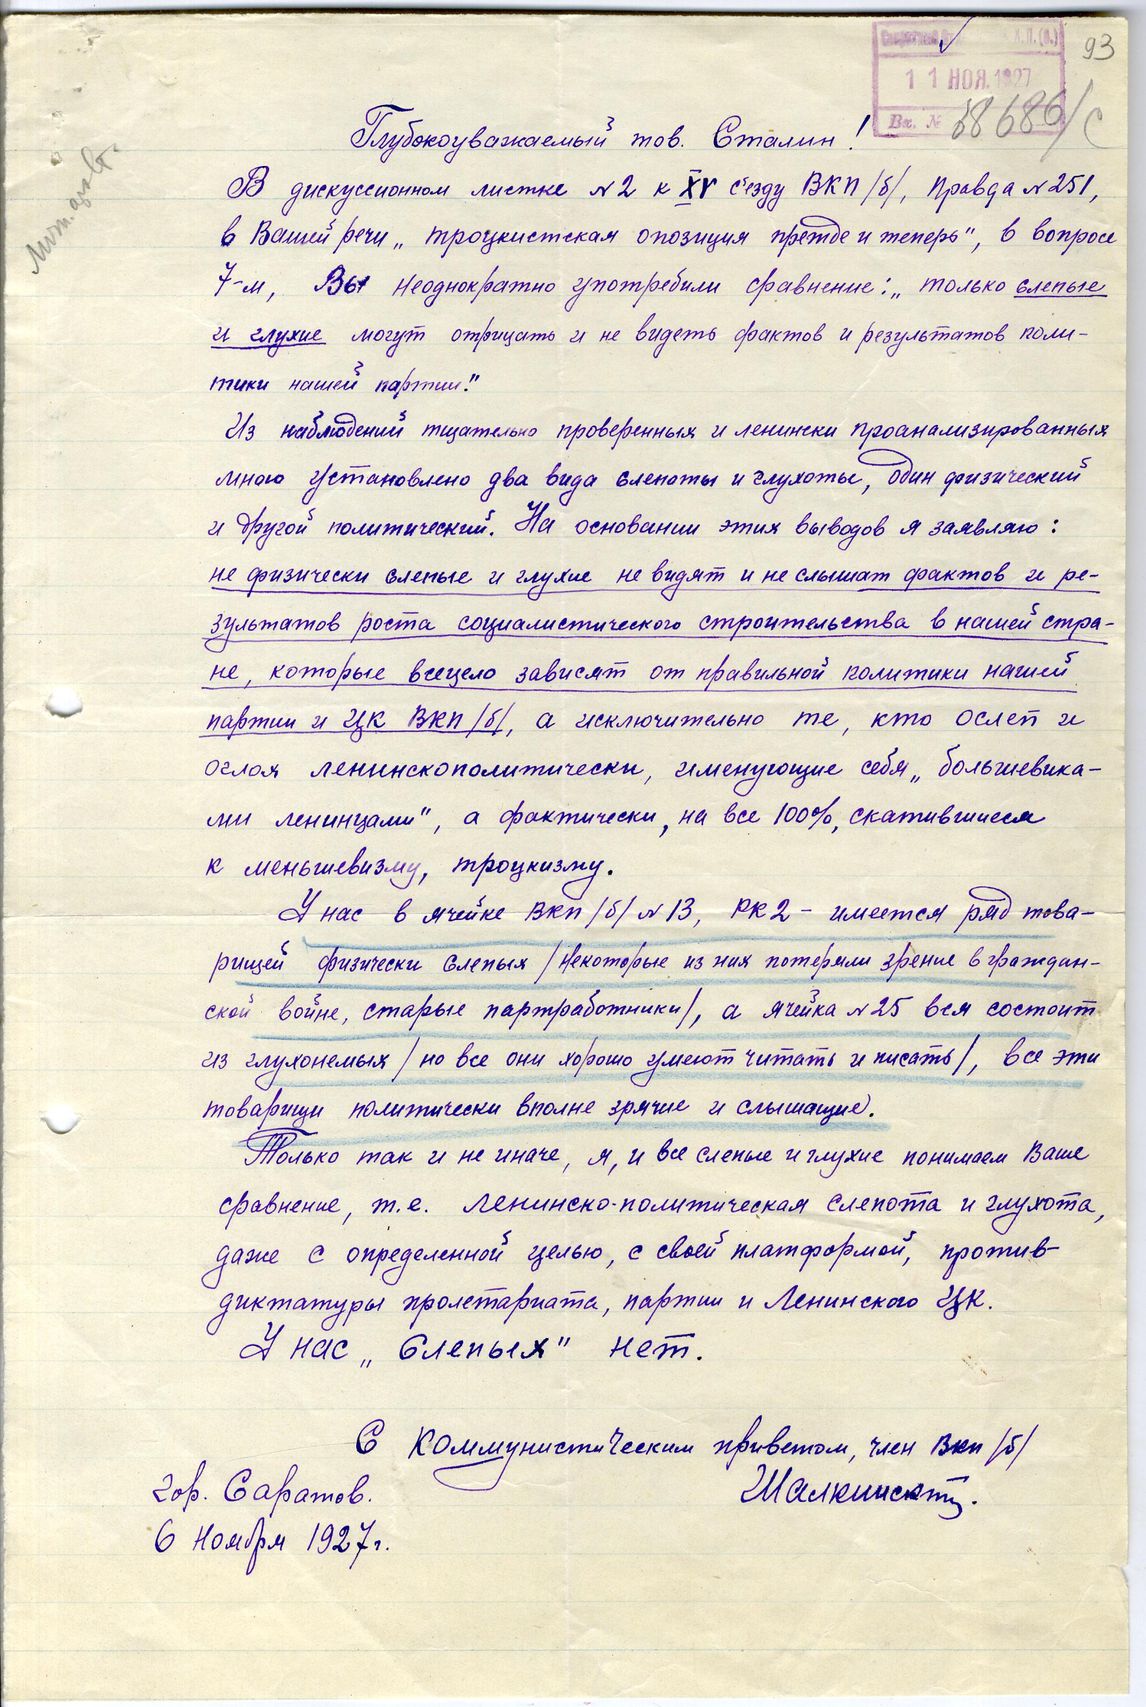 93
11 НОЯ. 1927
Вх. № 58686/с
Глубокоуважаемый тов. Сталин!
В дискуссионном листке №2 к XV с'езду ВКП/б/, Правда №251,
в Вашей речи „троцкистская опозиция прежде и теперь", в вопросе
7-м, Вы неоднократно употребили сравнение: „только слепые
и глухие могут отрицать и не видеть фактов и результатов поли-
тики нашей партии."
Из наблюдений тщательно проверенных и ленински проанализированных
мною установлено два вида слепоты и глухоты, один физический
и другой политический. На основании этих выводов я заявляю:
не физически слепые и глухие не видят и не слышат фактов и ре-
зультатов роста социалистического строительства в нашей стра-
не, которые всецело зависят от правильной политики нашей
партии и ЦК ВКП/б/, а исключительно те, кто ослеп и
оглох ленинскополитически, именующие себя „большевика-
ми ленинцами", а фактически, на все 100%, скатившиеся
к меньшевизму, троцкизму.
У нас в ячейке ВКП/б/ №13, РК2 - имеется ряд това-
рищей физически слепых /некоторые из них потеряли зрение в граждан-
ской войне, старые партработники/, а ячейка №25 вся состоит
из глухонемых /но все они хорошо умеют читать и писать/, все эти
товарищи политически вполне зрячие и слышащие.
Только так и не иначе, я, и все слепые и глухие понимаем Ваше
сравнение, т.е. Ленинско-политическая слепота и глухота,
даже с определенной целью, с своей платформой, против
диктатуры пролетариата, партии и Ленинского ЦК.
У нас „Слепых" нет.
С коммунистическим приветом, член ВКП/б/
гор. Саратов.
6 Ноября 1927г.